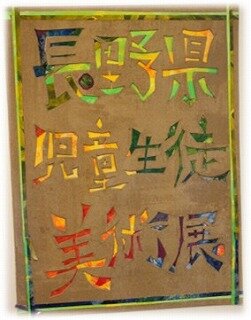 長野県
児童生徒
美術展